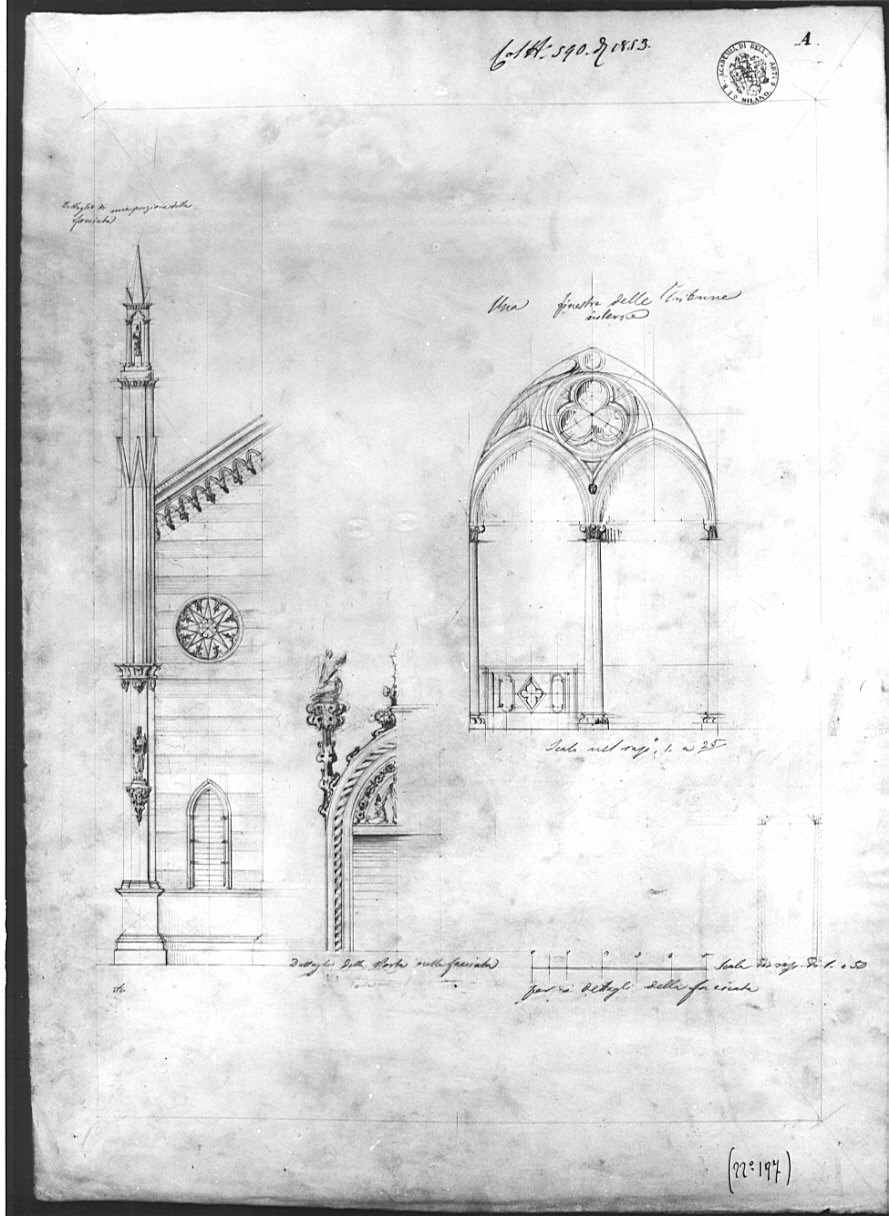 Col N.º 590. di 1853.
A
I. R. ACCADEMIA DI BELLE ARTI MILANO
Dettaglio di una porzione della
facciata
Una finestra delle Tribune
interne
Scala nel rapp.º 1. a 25
Dettaglio della Porta nella facciata
Scala di rapp. di 1. a 50
per i dettagli della facciata
(nº 197)